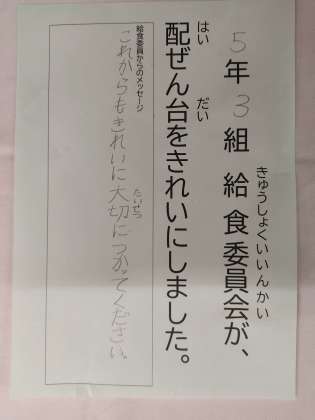 5年3組 給食委員会が、
きゅうしょくいいんかい
配ぜん台をきれいにしました。
はい だい
給食委員からのメッセージ
これからもきれいに大切につかってください。
たいせつ